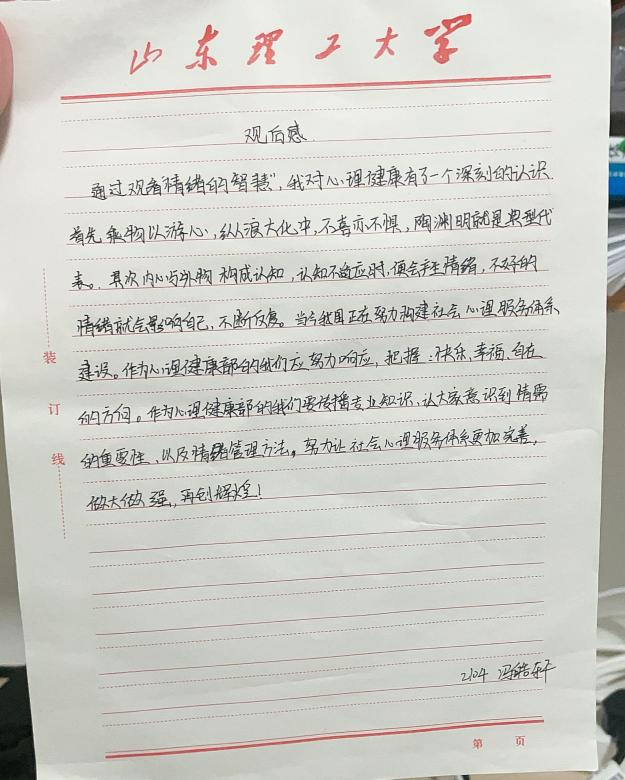 山东理工大学
观后感
通过观看“情绪的智慧”，我对心理健康有了一个深刻的认识
首先乘物以游心，纵浪大化中，不喜亦不惧，陶渊明就是典型代
表。其次内心与外物构成认知，认知不适应时，便会产生情绪，不好的
情绪就会影响自己，不断反复。当今我国正在努力构建社会心理服务体系
建设。作为心理健康部的我们应努力响应，把握：快乐、幸福、自在
的方向。作为心理健康部的我们要传播专业知识，让大家意识到情绪
的重要性，以及情绪管理方法。努力让社会心理服务体系更加完善，
做大做强，再创辉煌！
装
订
线
2104 冯皓轩
第 页